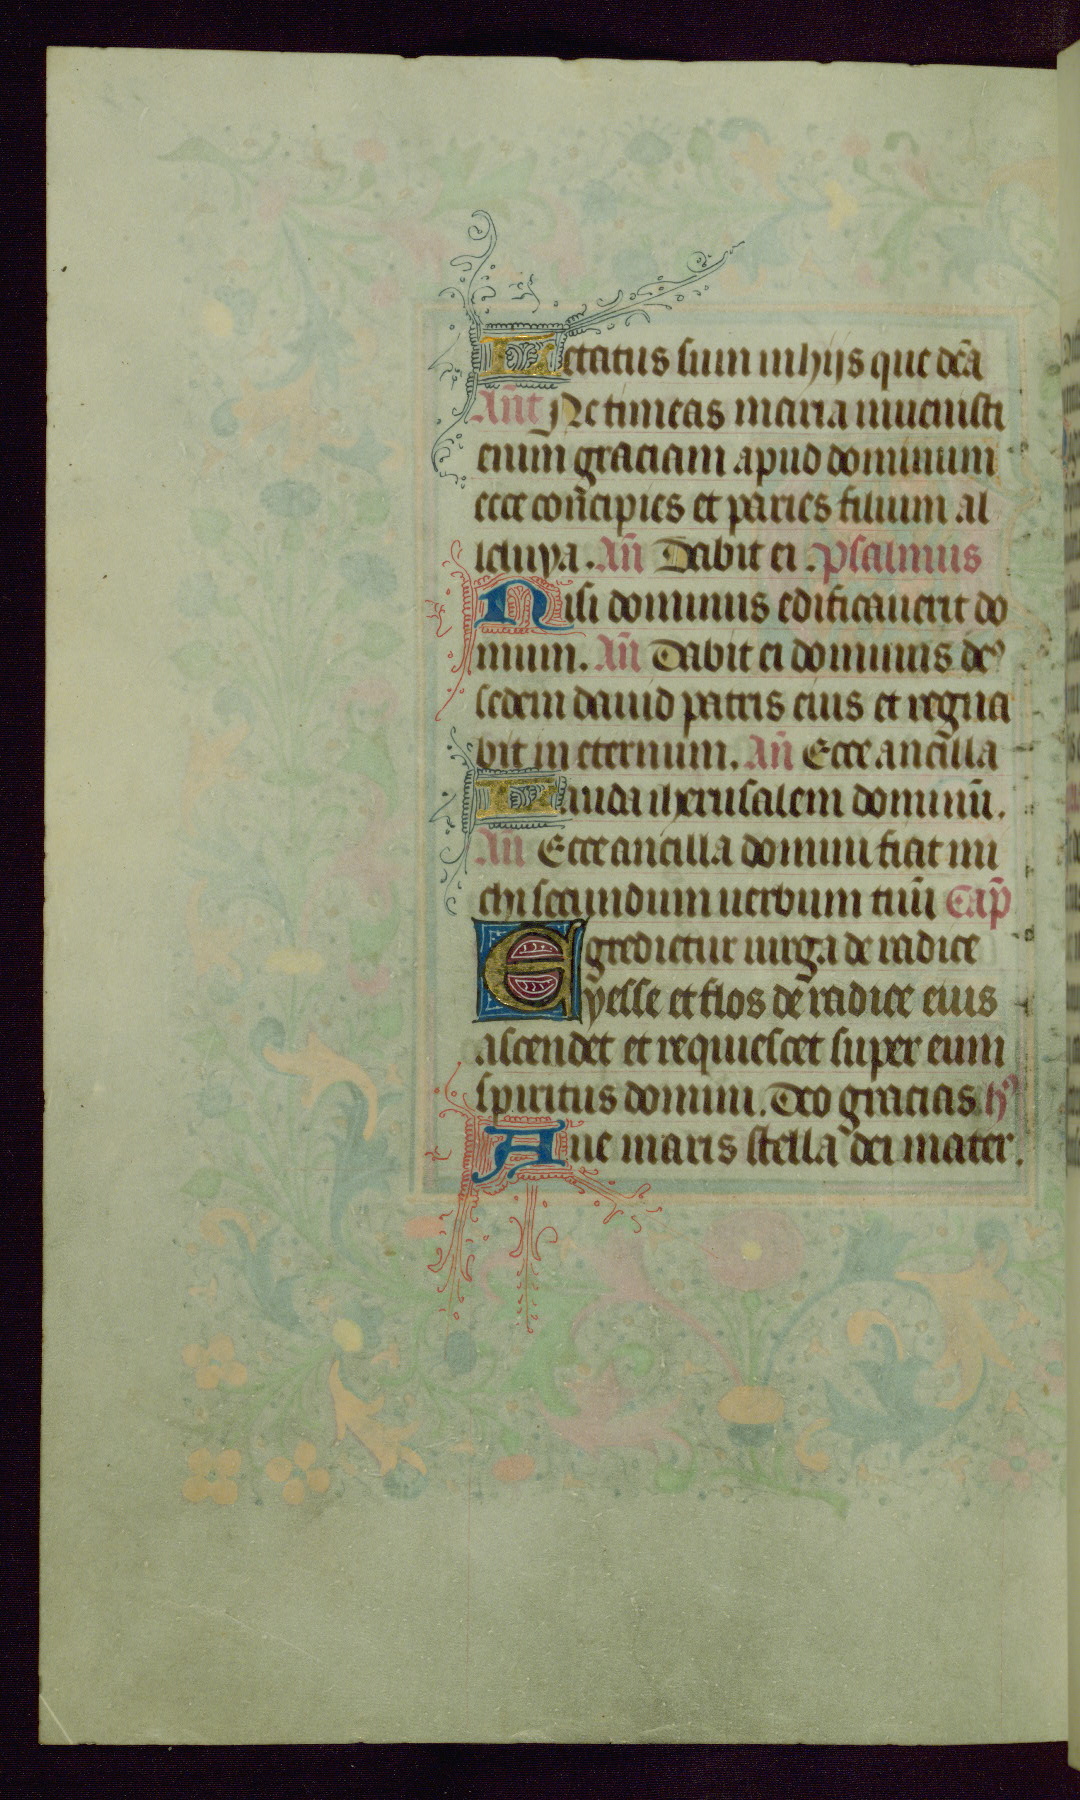 Letatus sum in hijs que dc̄a
An̄t Ne timeas maria inuenisti
enim graciam apud dominum
ecce con̄cipies et paries filium al
leluya. An̄ Dabit ei. Psalmus
Nisi dominus edificauerit do
mum. An̄ Dabit ei dominus de9
sedem dauid patris eius et regna
bit in eternum. An̄ Ecce ancilla
Lauda iherusalem dominū.
An̄ Ecce ancilla domini fiat mi
chi secundum uerbum tuū Cap̄
Egredietur uirga de radice
yesse et flos de radice eius
ascendet et requiescet super eum
spiritus domini. Deo gracias. h9
Aue maris stella dei mater.